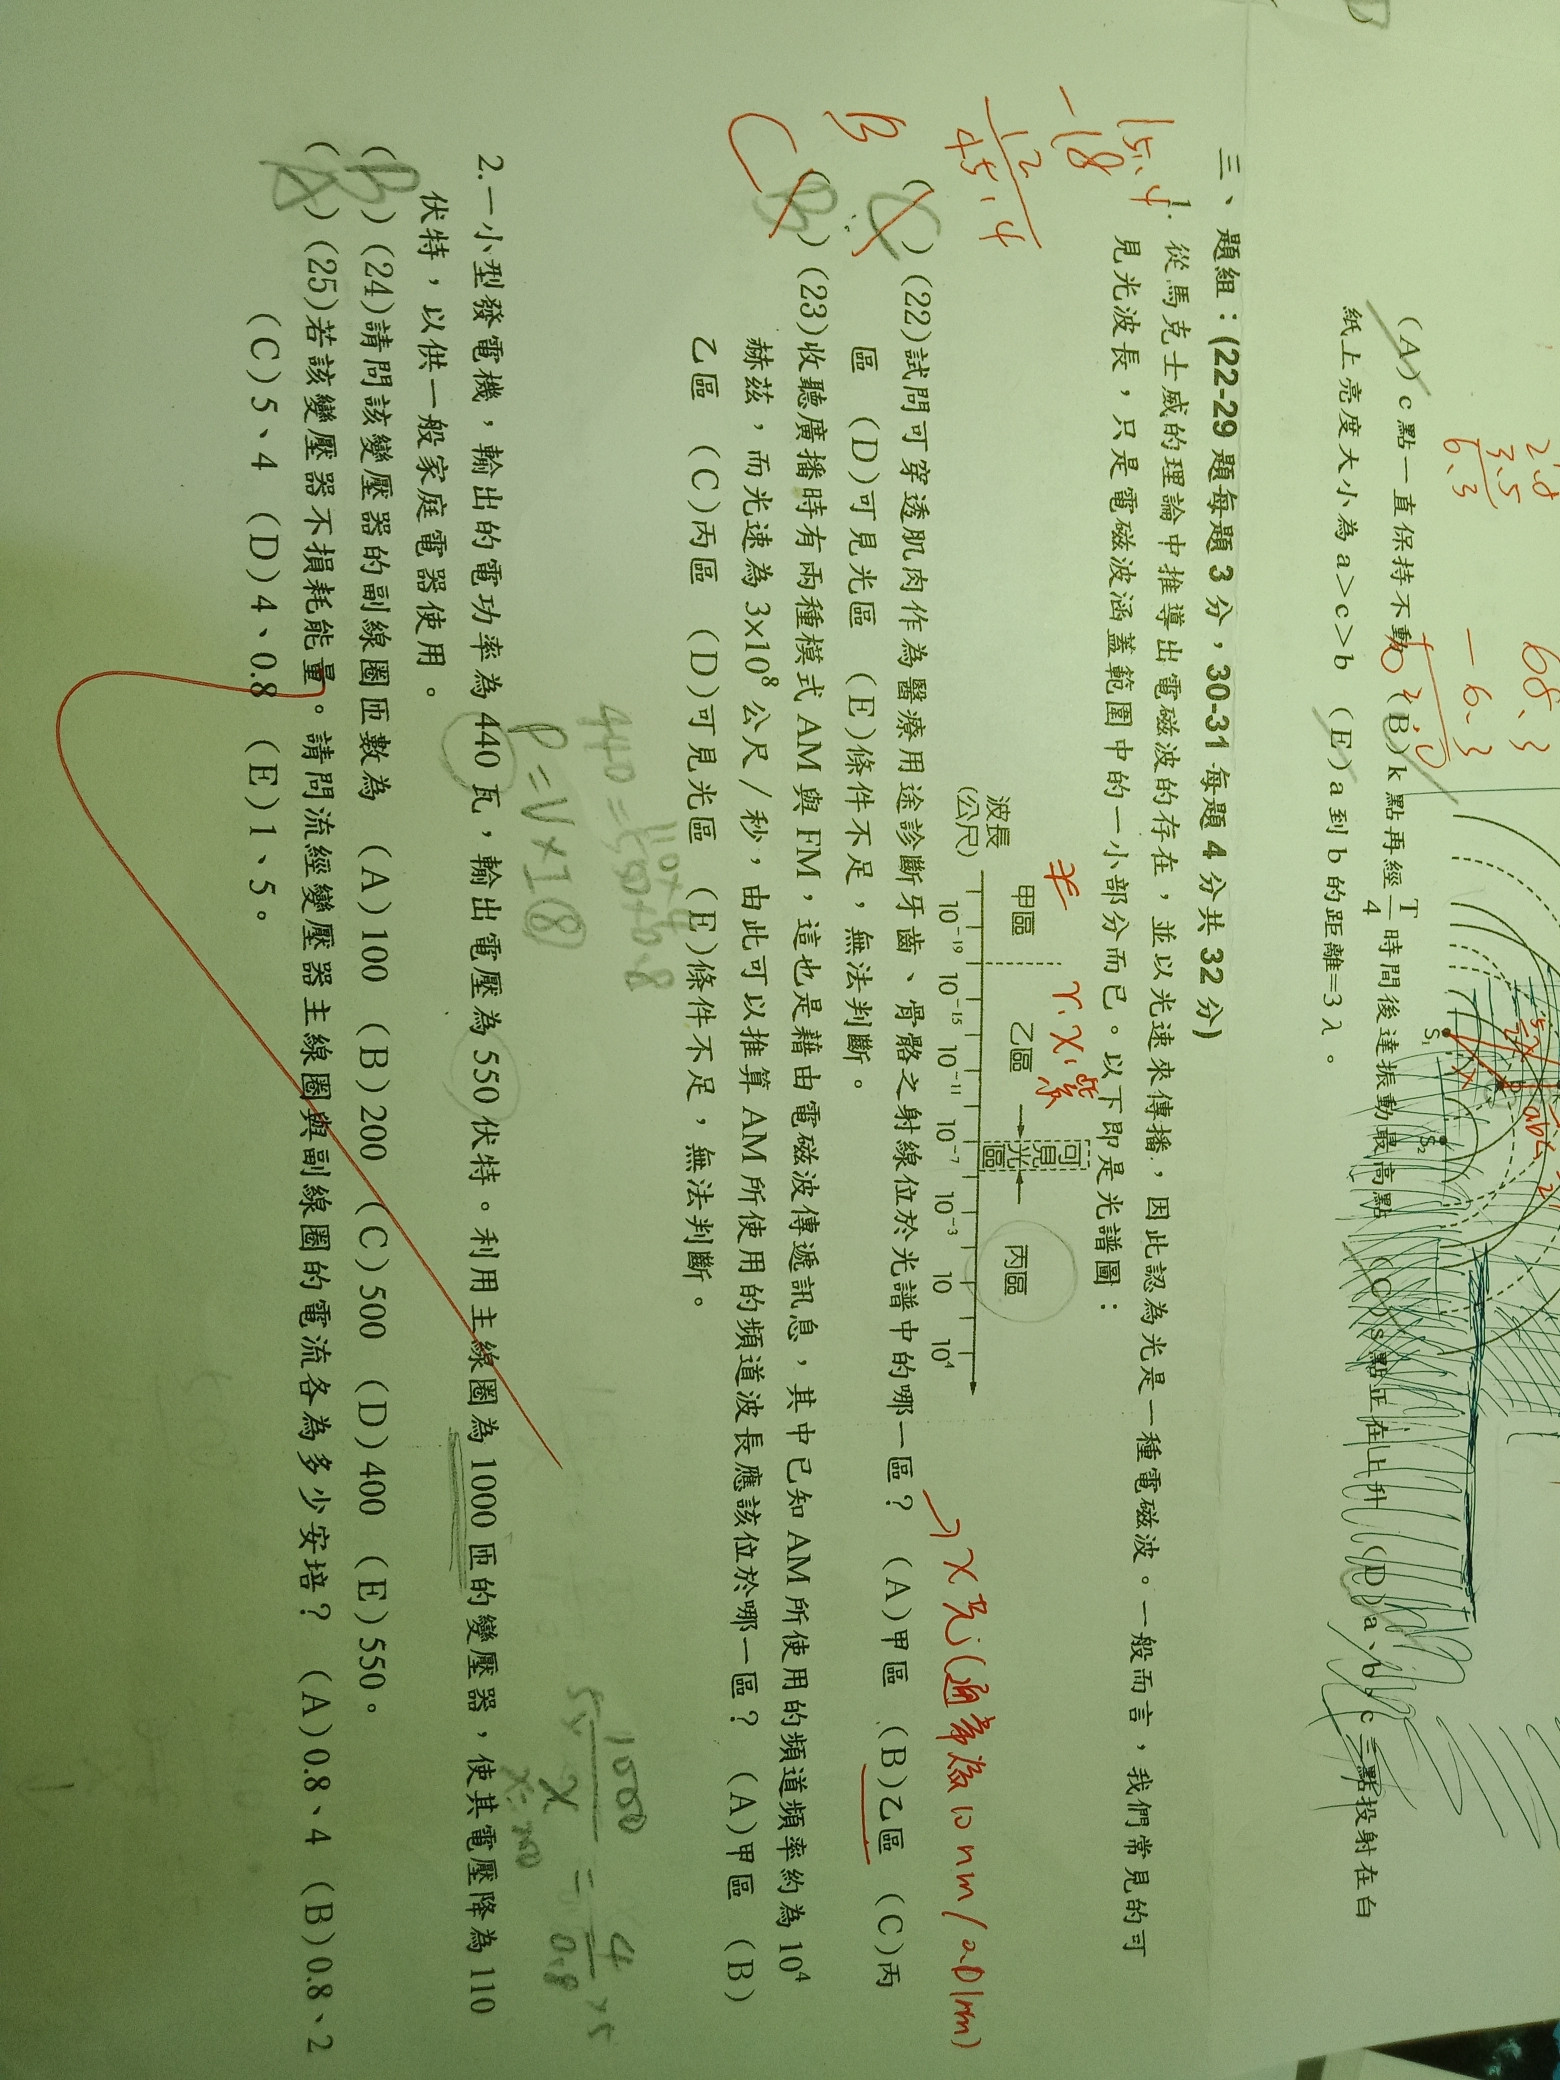 (A)c點一直保持不動 (B)k點再經T/4時間後達振動最高點 (C)s點正在上升 (D)a、b、c三點投射在白
紙上亮度大小為a>c>b (E)a到b的距離=3λ。
2.8
3.5
6.3
68.3
-6.3
三、題組：(22-29題每題3分，30-31每題4分共32分)
1. 從馬克士威的理論中推導出電磁波的存在，並以光速來傳播，因此認為光是一種電磁波。一般而言，我們常見的可
見光波長，只是電磁波涵蓋範圍中的一小部分而已。以下即是光譜圖：
15.4
-18
12
45.4
γ.X.紫
甲區 乙區 可見光區 丙區
波長
(公尺)
10⁻¹⁹ 10⁻¹⁵ 10⁻¹¹ 10⁻⁷ 10⁻³ 10 10⁴
→X光(通常為10nm/0.01nm)
B
(C)(22)試問可穿透肌肉作為醫療用途診斷牙齒、骨骼之射線位於光譜中的哪一區？ (A)甲區 (B)乙區 (C)丙
區 (D)可見光區 (E)條件不足，無法判斷。
C
(B)(23)收聽廣播時有兩種模式AM與FM，這也是藉由電磁波傳遞訊息，其中已知AM所使用的頻道頻率約為10⁴
赫茲，而光速為3x10⁸公尺/秒，由此可以推算AM所使用的頻道波長應該位於哪一區？ (A)甲區 (B)
乙區 (C)丙區 (D)可見光區 (E)條件不足，無法判斷。
110x4
440=550x0.8
P=VxI(8)
1000
x
=
4
0.8
x5
x=200
2.一小型發電機，輸出的電功率為440瓦，輸出電壓為550伏特。利用主線圈為1000匝的變壓器，使其電壓降為110
伏特，以供一般家庭電器使用。
(B)(24)請問該變壓器的副線圈匝數為 (A)100 (B)200 (C)500 (D)400 (E)550。
(A)(25)若該變壓器不損耗能量。請問流經變壓器主線圈與副線圈的電流各為多少安培？ (A)0.8、4 (B)0.8、2
(C)5、4 (D)4、0.8 (E)1、5。